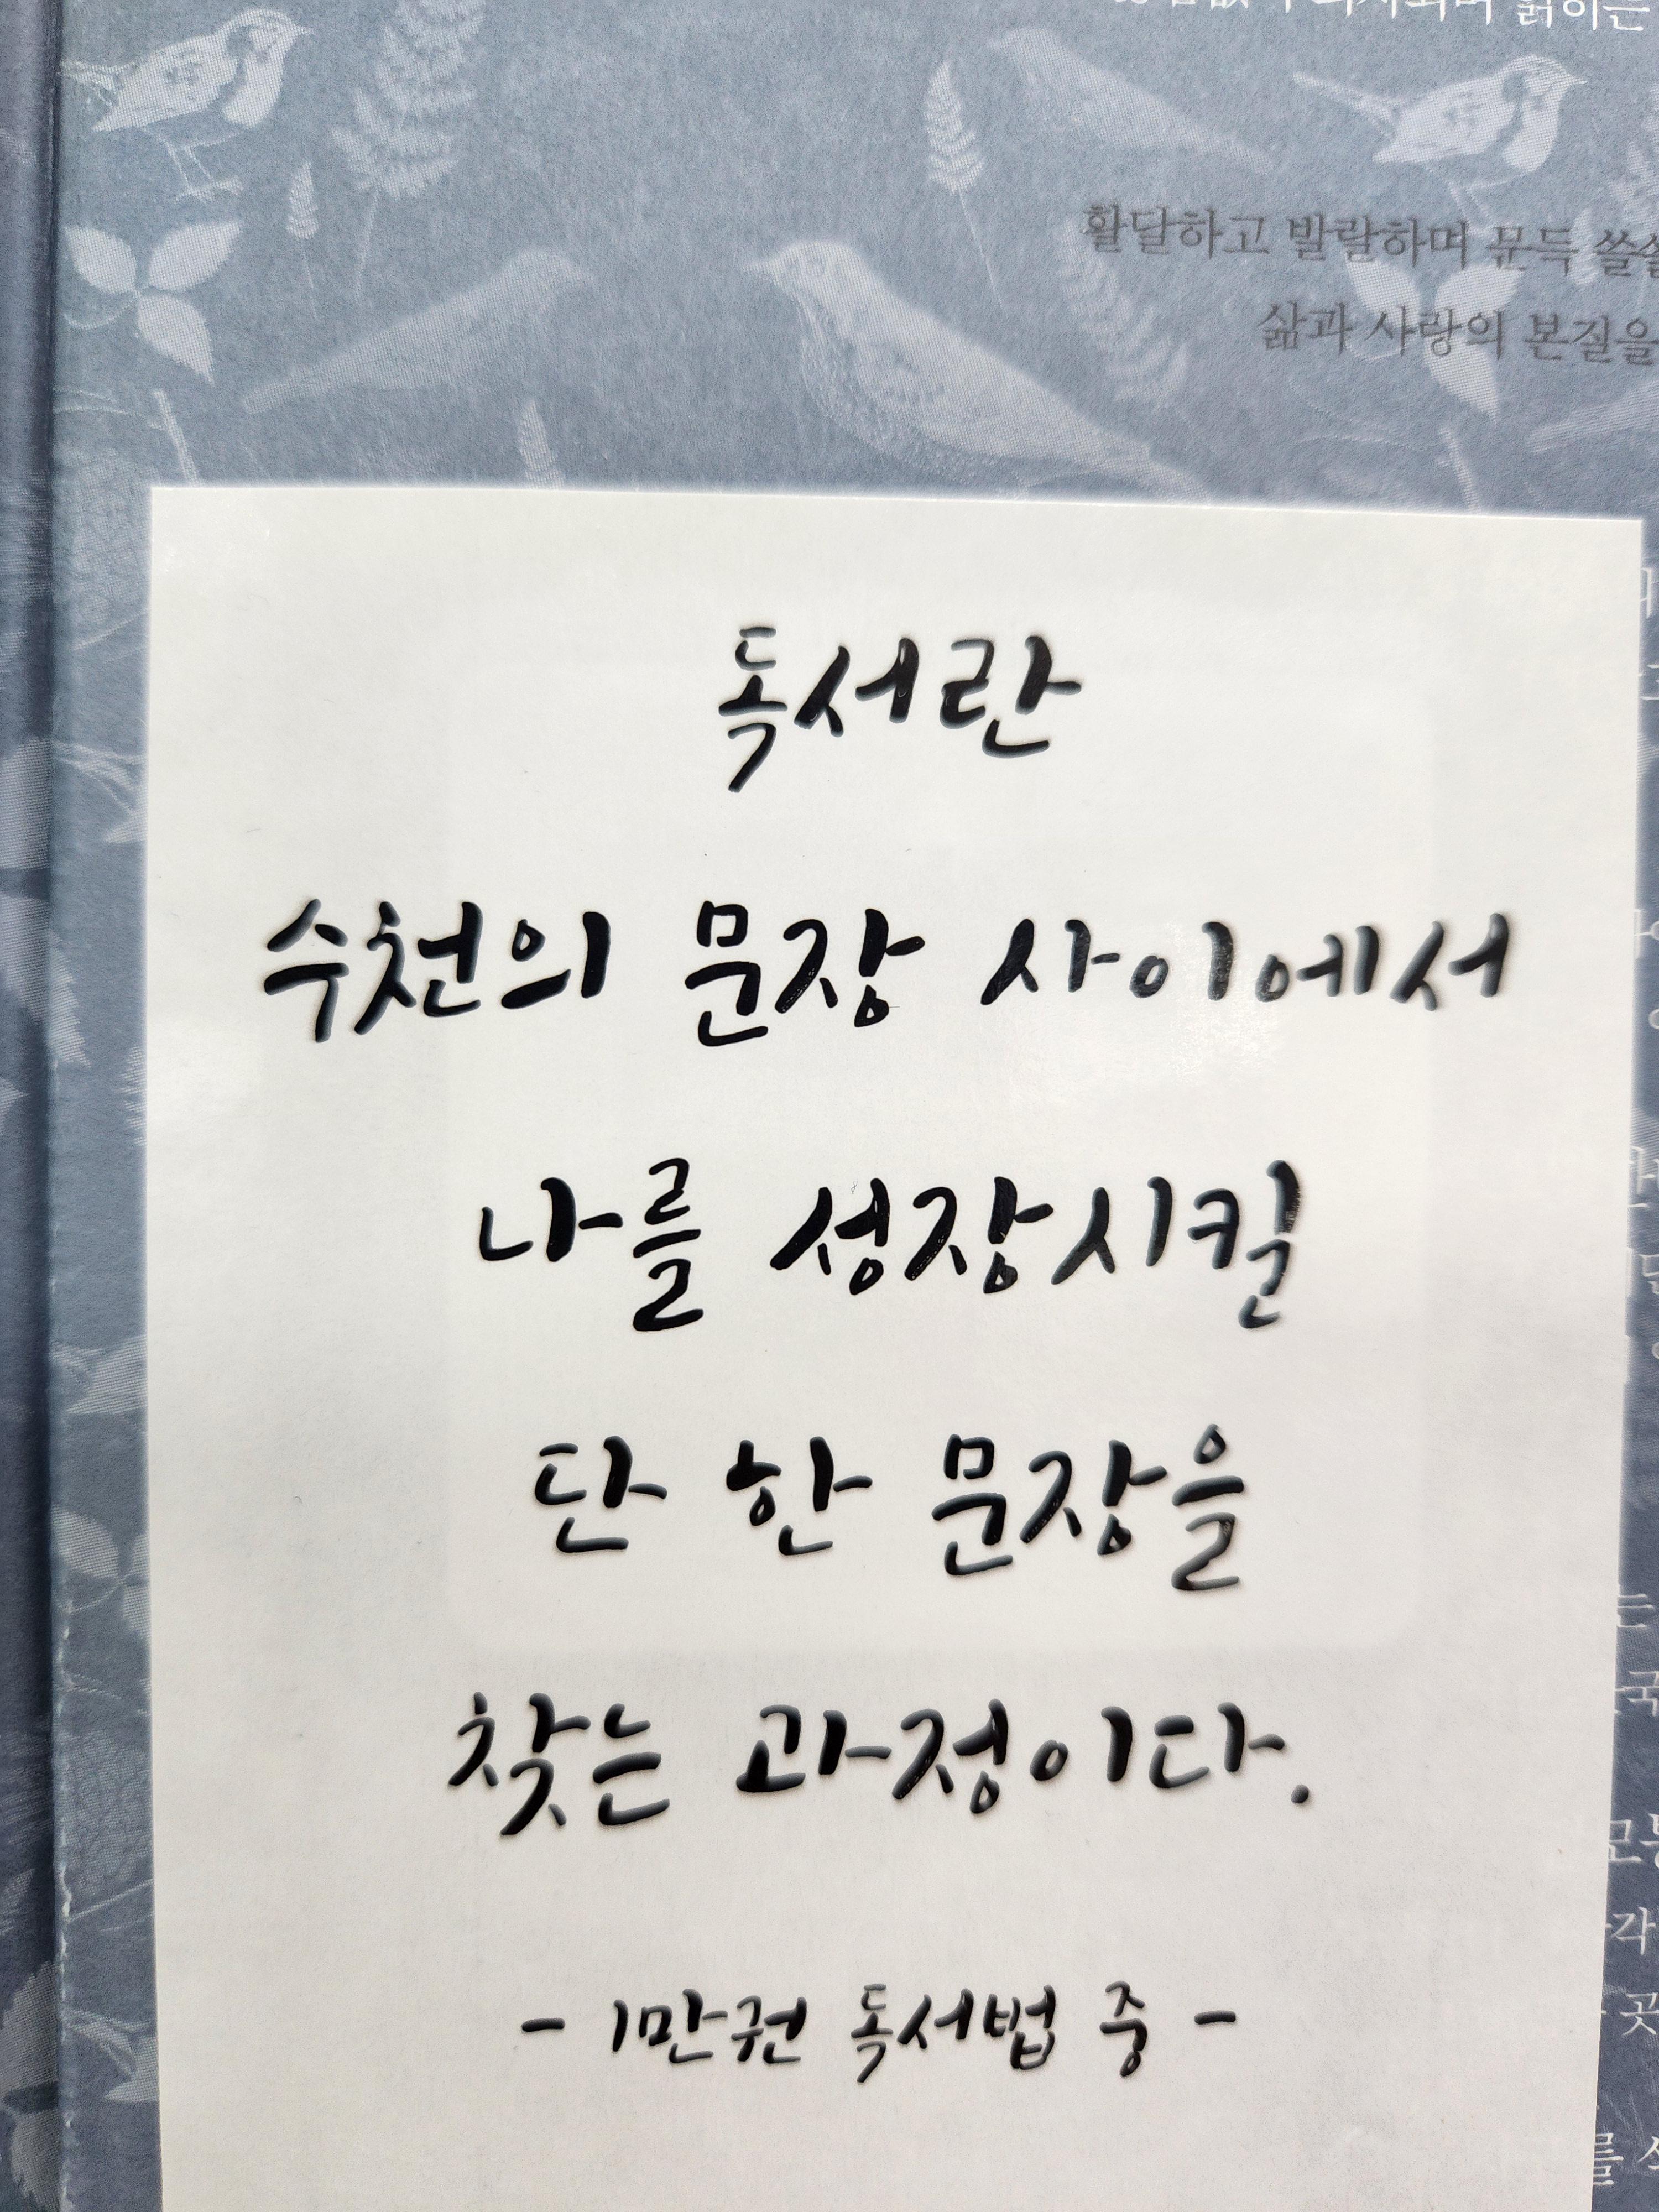 읽히는
활달하고 발랄하며 문득
삶과 사랑의 본질을
독서란
수천의 문장 사이에서
나를 성장시킬
단 한 문장을
찾는 과정이다.
- 1만권 독서법 중 -